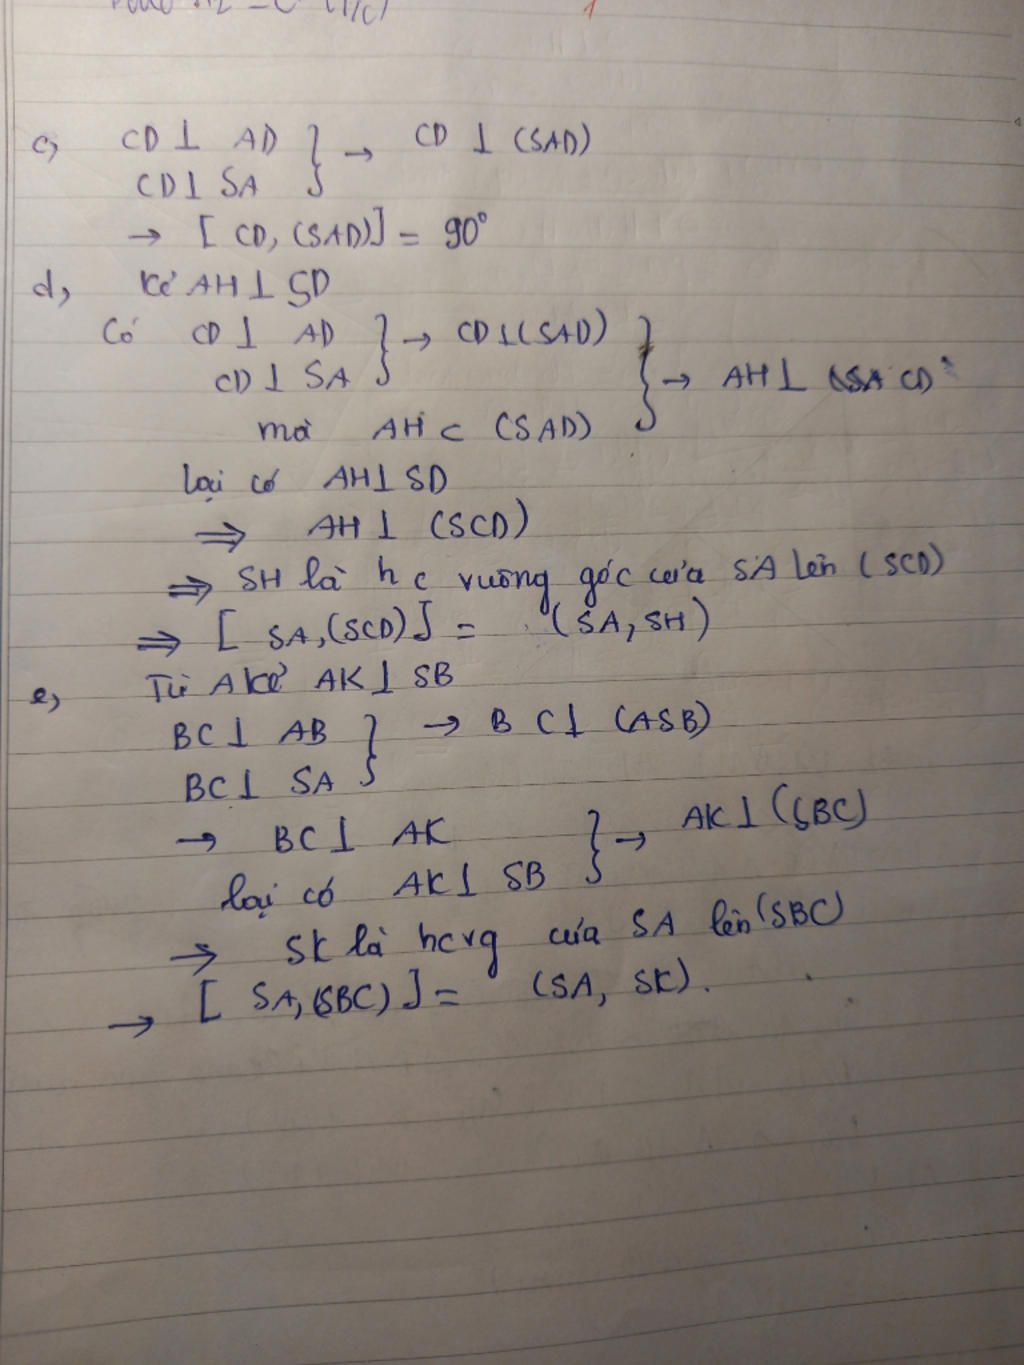 c, CD ⊥ AD } → CD ⊥ (SAD)
CD ⊥ SA
→ [ CD, (SAD)] = 90°
d, Kẻ AH ⊥ SD
Có CD ⊥ AD } → CD ⊥ (SAD) } → AH ⊥ CD
CD ⊥ SA
mà AH ⊂ (SAD)
lại có AH ⊥ SD
⇒ AH ⊥ (SCD)
⇒ SH là h c vuông góc của SA lên (SCD)
⇒ [ SA, (SCD)] = (SA, SH)
e, Từ A kẻ AK ⊥ SB
BC ⊥ AB } → BC ⊥ (ASB)
BC ⊥ SA
→ BC ⊥ AK } → AK ⊥ (SBC)
lại có AK ⊥ SB
→ SK là hcvg của SA lên (SBC)
→ [ SA, (SBC) ] = (SA, SK).